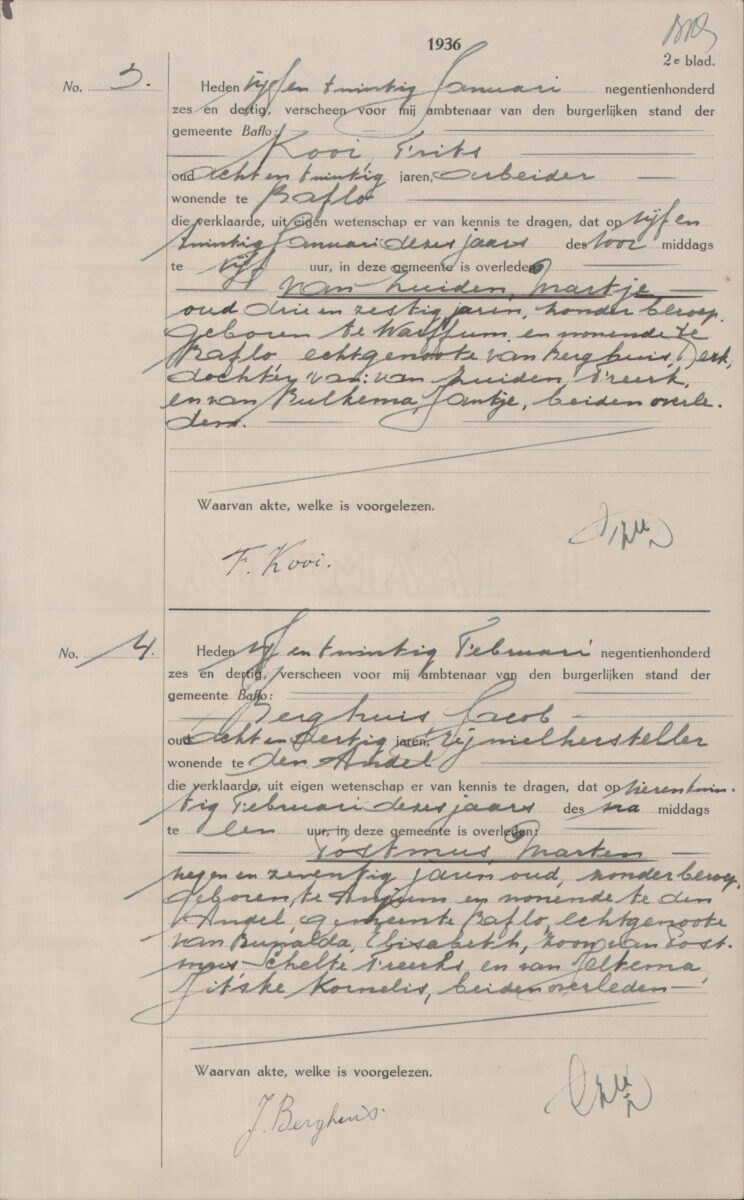 1936
2e blad.
No. 3. Heden vijf en twintig Januari negentienhonderd
zes en dertig, verscheen voor mij ambtenaar van den burgerlijken stand der
gemeente Baflo:
Kooi, Frits
oud acht en twintig jaren, arbeider
wonende te Baflo
die verklaarde, uit eigen wetenschap er van kennis te dragen, dat op vijf en
twintig Januari dezes jaars des voor middags
te vijf uur, in deze gemeente is overleden
van Zuiden, Martje
oud drie en zestig jaren, zonder beroep,
geboren te Warffum, en wonende te
Baflo, echtgenoote van Berghuis, Derk,
dochter van: van Zuiden, Freerk,
en van Bulthema, Jantje, beiden overle-
den.
Waarvan akte, welke is voorgelezen.
F. Kooi.
No. 4. Heden vijf en twintig Februari negentienhonderd
zes en dertig, verscheen voor mij ambtenaar van den burgerlijken stand der
gemeente Baflo:
Berghuis, Jacob
oud acht en dertig jaren, rijwielhersteller
wonende te den Andel
die verklaarde, uit eigen wetenschap er van kennis te dragen, dat op vier en twin-
tig Februari dezes jaars des na middags
te een uur, in deze gemeente is overleden:
Postmus, Marten
negen en zeventig jaren oud, zonder beroep,
geboren te Anjum en wonende te den
Andel, gemeente Baflo, echtgenoote
van Elisabeth, zoon van Post-
mus Schelte Freerks en van Jeltema
Jitske Kornelis, beiden overleden
Waarvan akte, welke is voorgelezen.
J. Berghuis.